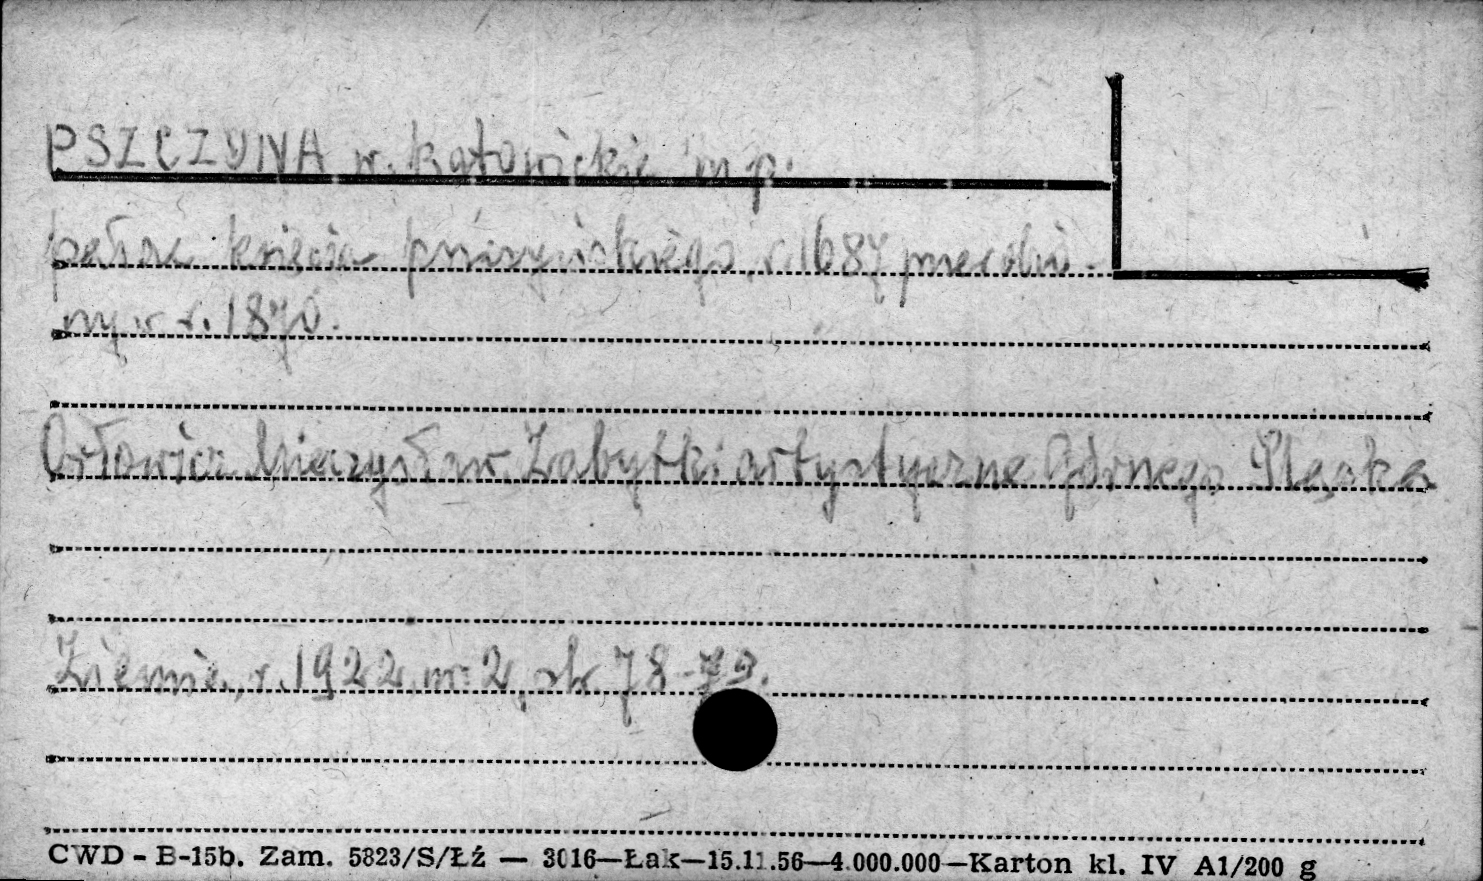 PSZCZYNA w. katowickie m p.
pałac księcia pszczyńskiego, r. 1687 przerobio-
ny w r. 1870.
Orłowicz Mieczysław. Zabytki artystyczne Górnego Śląska
Ziemia, r. 1922, nr 2, str. 78-79.
CWD - B-15b. Zam. 5823/S/Łź — 3016—Łak—15.11.56—4.000.000—Karton kl. IV A1/200 g